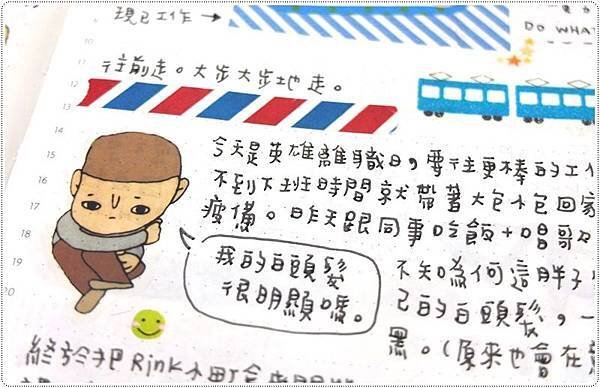 現己工作 →
DO WHAT
往前走。大步大步地走。
今天是英雄離職日，要往更棒的工作
不到下班時間就帶著大包小包回家
疲備。昨天跟同事吃飯+唱歌
我的白頭髮
很明顯嗎。
不知為何這胖子
己的白頭髮，一
黑。(原來也會在
終於把Rink小町
10
11
12
13
14
15
16
17
18
19
20